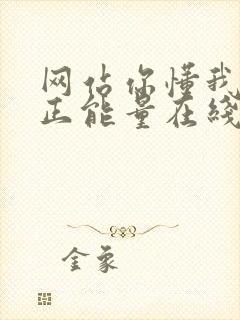 网站你懂我
正能量在线
金象